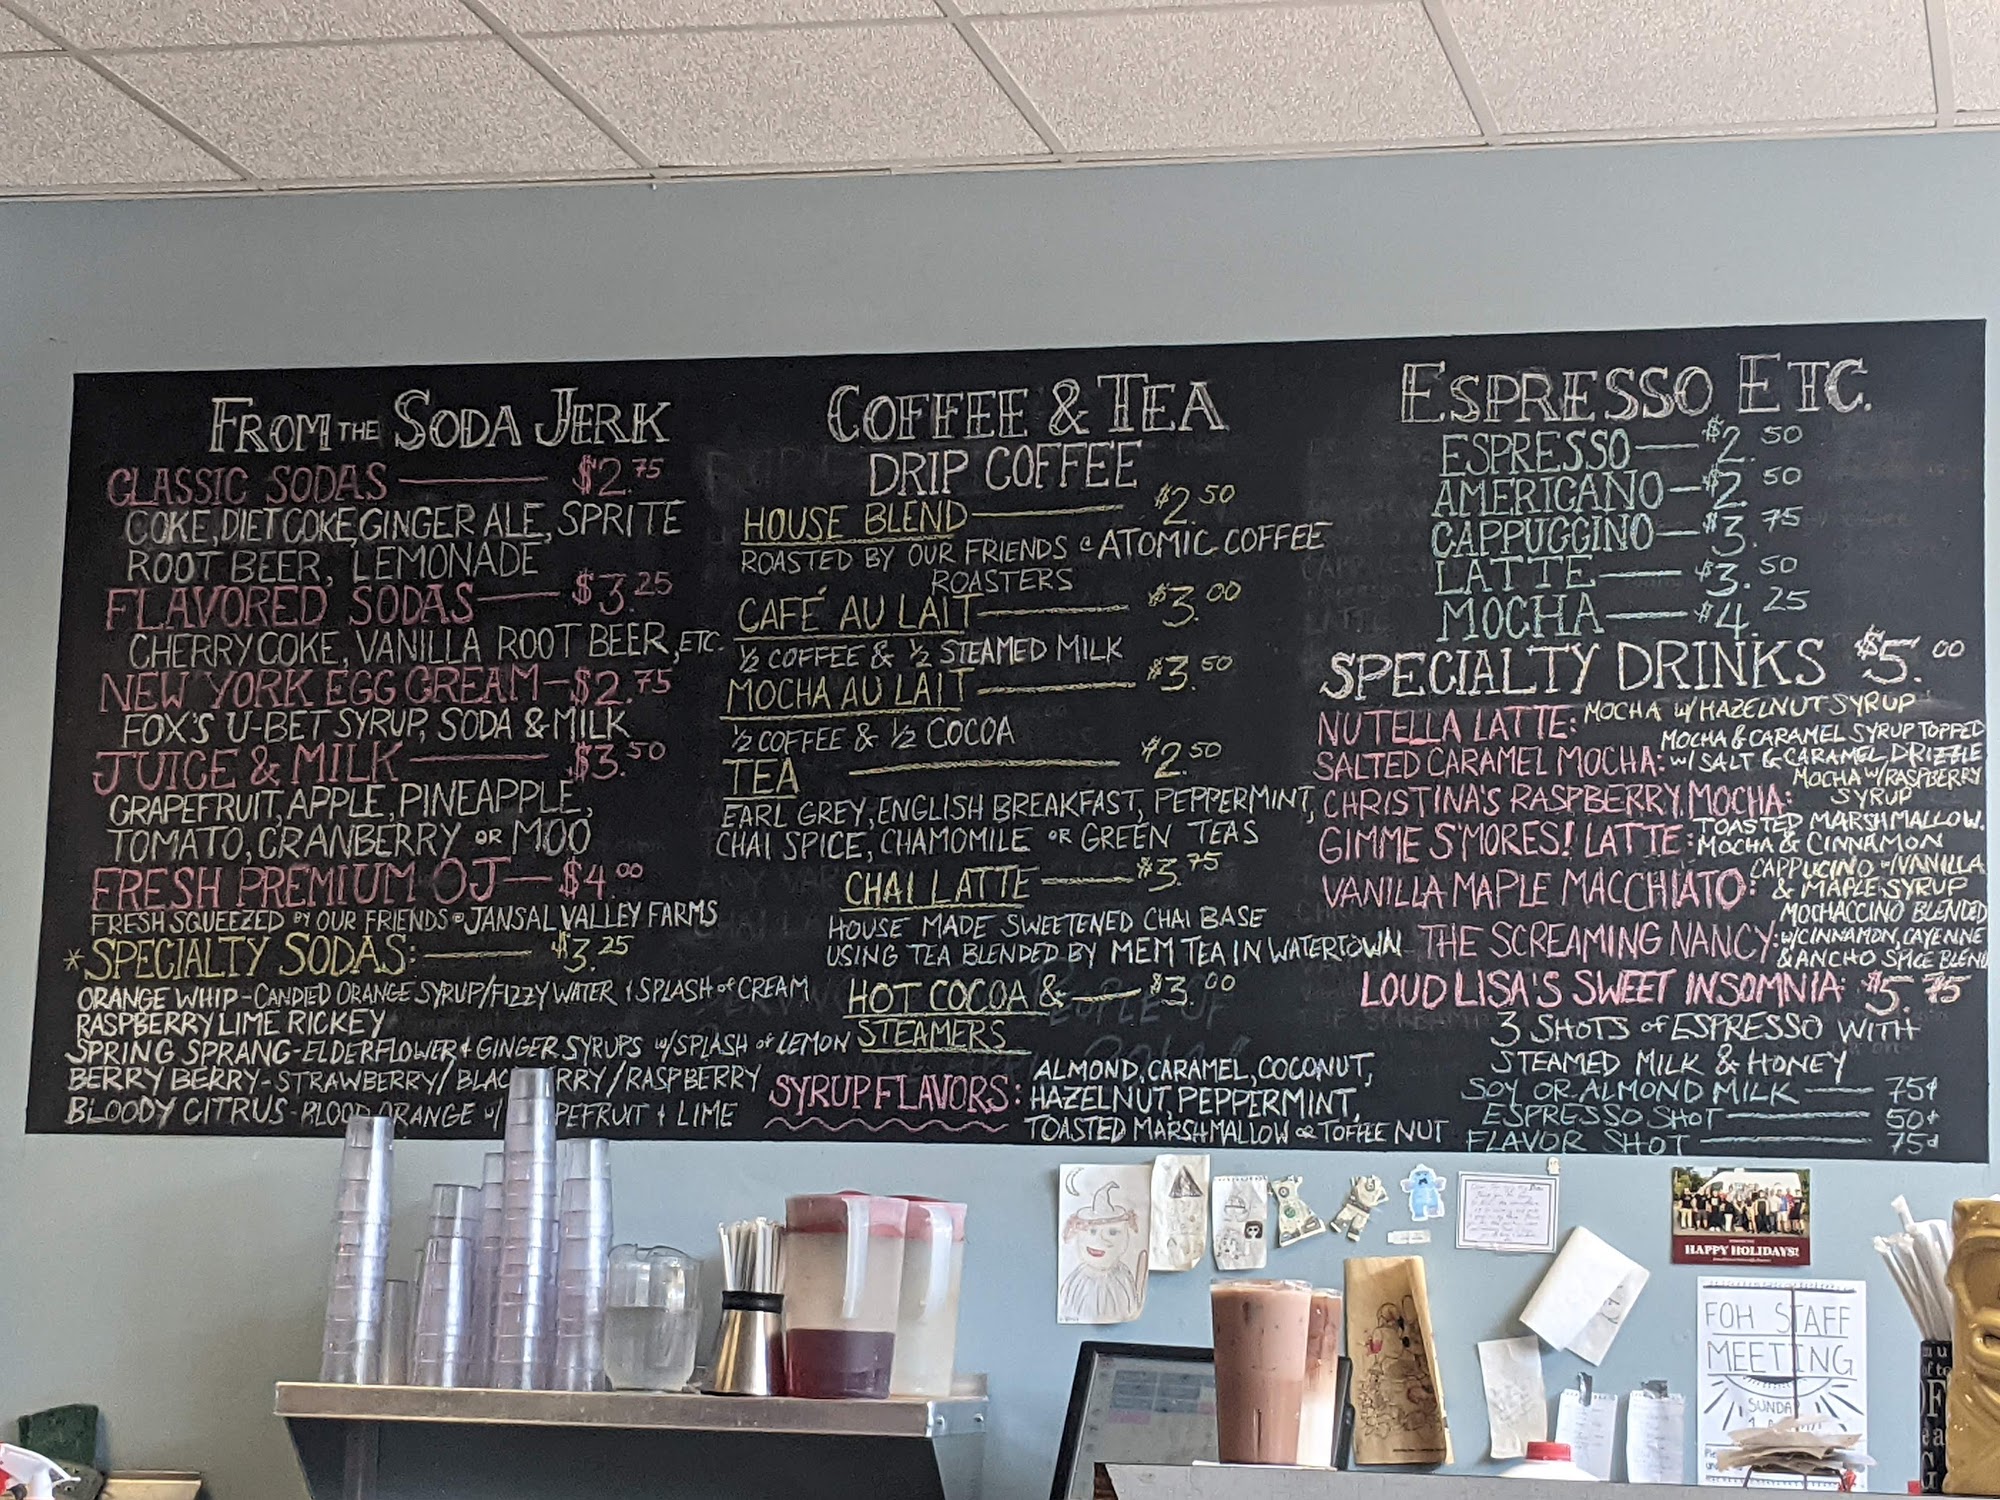 FROM THE SODA JERK
CLASSIC SODAS — $2.75
COKE, DIET COKE, GINGER ALE, SPRITE
ROOT BEER, LEMONADE
FLAVORED SODAS — $3.25
CHERRY COKE, VANILLA ROOT BEER, ETC.
NEW YORK EGG CREAM — $2.75
FOX'S U-BET SYRUP, SODA & MILK
JUICE & MILK — $3.50
GRAPEFRUIT, APPLE, PINEAPPLE,
TOMATO, CRANBERRY OR MOO
FRESH PREMIUM OJ — $4.00
FRESH SQUEEZED BY OUR FRIENDS @ JANSAL VALLEY FARMS
*SPECIALTY SODAS: — $3.25
ORANGE WHIP - CANDIED ORANGE SYRUP/FIZZY WATER & SPLASH OF CREAM
RASPBERRY LIME RICKEY
SPRING SPRANG - ELDERFLOWER & GINGER SYRUPS W/SPLASH OF LEMON
BERRY BERRY - STRAWBERRY/BLAC RRY/RASPBERRY
BLOODY CITRUS - BLOOD ORANGE W/ PEFRUIT & LIME
COFFEE & TEA
DRIP COFFEE
HOUSE BLEND — $2.50
ROASTED BY OUR FRIENDS @ ATOMIC COFFEE
ROASTERS
CAFÉ AU LAIT — $3.00
1/2 COFFEE & 1/2 STEAMED MILK
MOCHA AU LAIT — $3.50
1/2 COFFEE & 1/2 COCOA
TEA — $2.50
EARL GREY, ENGLISH BREAKFAST, PEPPERMINT,
CHAI SPICE, CHAMOMILE OR GREEN TEAS
CHAI LATTE — $3.75
HOUSE MADE SWEETENED CHAI BASE
USING TEA BLENDED BY MEM TEA IN WATERTOWN
HOT COCOA & — $3.00
STEAMERS
SYRUP FLAVORS: ALMOND, CARAMEL, COCONUT,
HAZELNUT, PEPPERMINT,
TOASTED MARSHMALLOW OR TOFFEE NUT
ESPRESSO ETC.
ESPRESSO — $2.50
AMERICANO — $2.50
CAPPUCCINO — $3.75
LATTE — $3.50
MOCHA — $4.25
SPECIALTY DRINKS $5.00
NUTELLA LATTE: MOCHA W/HAZELNUT SYRUP
SALTED CARAMEL MOCHA: MOCHA & CARAMEL SYRUP TOPPED
W/SALT & CARAMEL DRIZZLE
CHRISTINA'S RASPBERRY MOCHA: MOCHA W/RASPBERRY
SYRUP
GIMME S'MORES! LATTE: TOASTED MARSHMALLOW.
MOCHA & CINNAMON
VANILLA MAPLE MACCHIATO: CAPPUCINO W/VANILLA
& MAPLE SYRUP
THE SCREAMING NANCY: MOCHACCINO BLENDED
W/CINNAMON, CAYENNE
& ANCHO SPICE BLEND
LOUD LISA'S SWEET INSOMNIA: $5.75
3 SHOTS OF ESPRESSO WITH
STEAMED MILK & HONEY
SOY OR ALMOND MILK — 75¢
ESPRESSO SHOT — 50¢
FLAVOR SHOT — 75¢
HAPPY HOLIDAYS!
FOH STAFF
MEETING
SUNDAY